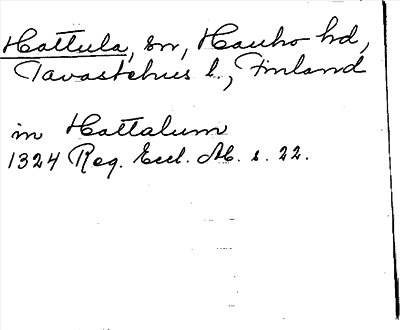 Hattula, sn, Hauho hd,
Tavastehus l., Finland
in Hattalum
1324 Reg. Eccl. Ab. s. 22.